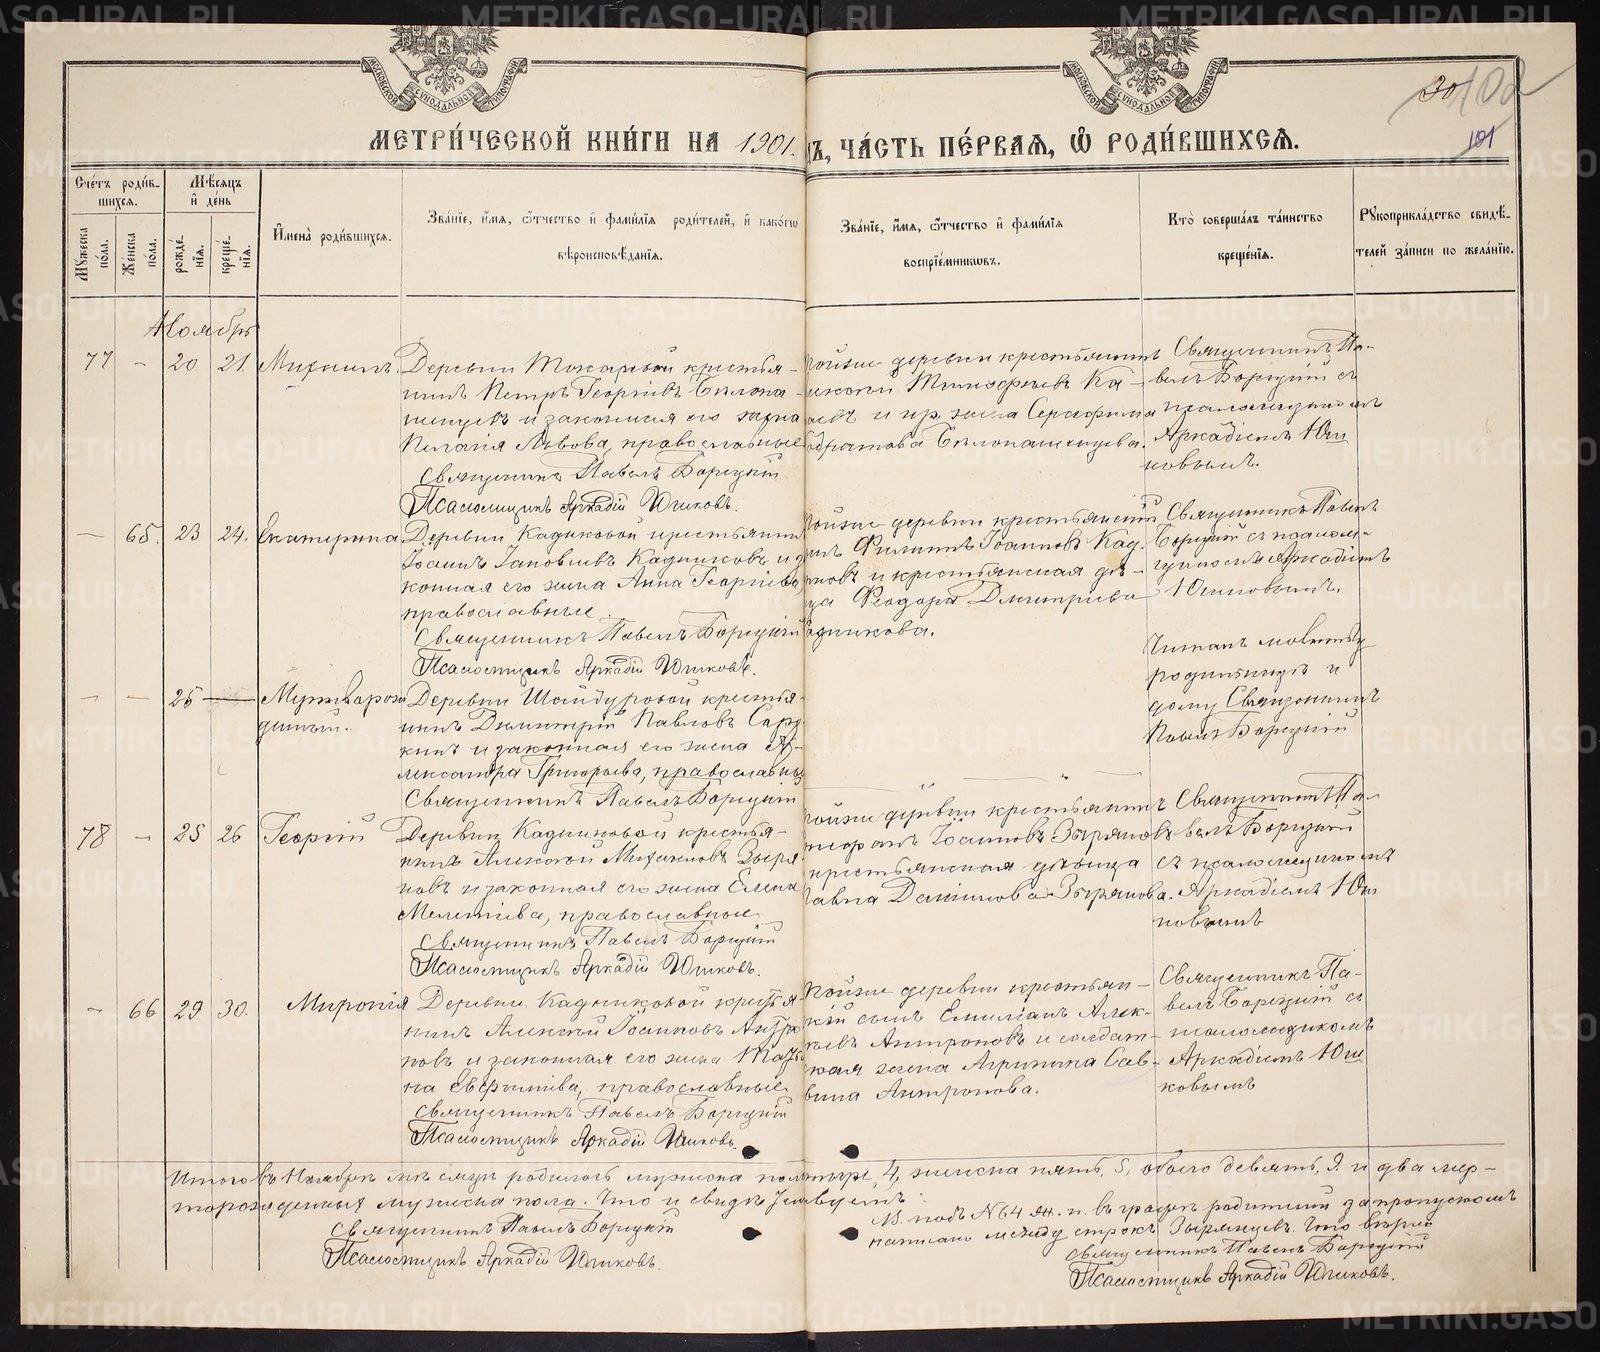 МЕТРИ́ЧЕСКОЙ КНИ́ГИ НА 1901. Ъ, ЧА́СТЬ ПЕ́РВАЯ, Ѡ҆ РОДИ́ВШИХСЯ.
30
102
101
Сче́тъ роди́в-
шихся.
Мꙋ́жеска по́ла.
Же́нска по́ла.
Мѣ́сяцъ
и҆ де́нь
рожде́нїя.
креще́нїя.
И҆мена̀ роди́вшихся.
Зва́нїе, и҆́мя, ѻ҆́тчество и҆ фами́лїя роди́телей, и҆ како́гѡ
вѣроисповѣ́данїя.
Зва́нїе, и҆́мя, ѻ҆́тчество и҆ фами́лїя
воспрїе́мникѡвъ.
Кто̀ соверша́лъ та́инство
креще́нїя.
Рꙋкоприкла́дство свидѣ́-
телей за́писи по жела́нїю.
Ноябрь
77 - 20 21 Михаилъ.
Деревни Токаревой крестья-
нинъ Петръ Георгіевъ Бѣлопа-
шенцевъ и законная его жена
Пелагія Львова, православные
Священникъ Павелъ Борецкій
Псаломщикъ Аркадій Юшковъ.
деревни крестьянинъ
Тимофѣевъ Ка-
и кр. жена Серафима
Бѣлопашенцева.
Священникъ Па-
велъ Борецкій съ
псаломщикомъ
Аркадіемъ Юш
ковымъ.
- 65. 23 24. Екатерина
Деревни Кадниковой крестьянинъ
Іоаннъ Іаковлевъ Кадниковъ и за
конная его жена Анна Георгіева
православные.
Священникъ Павелъ Борецкій
Псаломщикъ Аркадій Юшковъ.
деревни крестьянскій
Филиппъ Іоанновъ Кад-
никовъ и крестьянская дѣ-
ца Феодора Дмитріева
адникова.
Священникъ Павелъ
Борецкій съ псалом-
щикомъ Аркадіемъ
Юшковымъ.
- - 25 - Мертворож
денный.
Деревни Шайдуровой крестья-
нинъ Димитрій Павловъ
и законная его жена А-
лександра Григорьева, православные
Священникъ Павелъ Борецкій
Читалъ молитву
родильницѣ и
дому Священникъ
Павелъ Борецкій
78 - 25 26 Георгій
Деревни Кадниковой крестья-
нинъ Алексѣй Михаиловъ Зыря
новъ и законная его жена Елена
Мелетіева, православные
Священникъ Павелъ Борецкій
Псаломщикъ Аркадій Юшковъ.
деревни крестьянинъ
Іоанновъ Зыряновъ
крестьянская дѣвица
Даніилова Зырянова.
Священникъ Па-
велъ Борецкій
съ псаломщикомъ
Аркадіемъ Юш
ковымъ
- 66 29 30. Миропія
Деревни Кадниковой крестья-
нинъ Алексѣй Іоанновъ Антро
повъ и законная его жена Татья
на Евфиміева, православные
Священникъ Павелъ Борецкій
Псаломщикъ Аркадій Юшковъ.
деревни крестьян-
кій сынъ Емиліанъ Алек-
ѣевъ Антроповъ и солдат-
кая жена Агрипина Сав-
вина Антропова.
Священникъ Па-
велъ Борецкій съ
псаломщикомъ
Аркадіемъ Юш
ковымъ
Итого въ Ноябрѣ мѣсяцѣ родилось мужска пола 4, женска пять, 5, обоего девять, 9. и два мер-
творожденныхъ мужска пола. Что и свидѣтельствуемъ:
Священникъ Павелъ Борецкій
Псаломщикъ Аркадій Юшковъ.
подъ №64 въ графѣ родителей за пропускомъ
написано между строкъ Что вѣрно
Священникъ Павелъ Борецкій
Псаломщикъ Аркадій Юшковъ.
METRIKI.GASO-URAL.RU